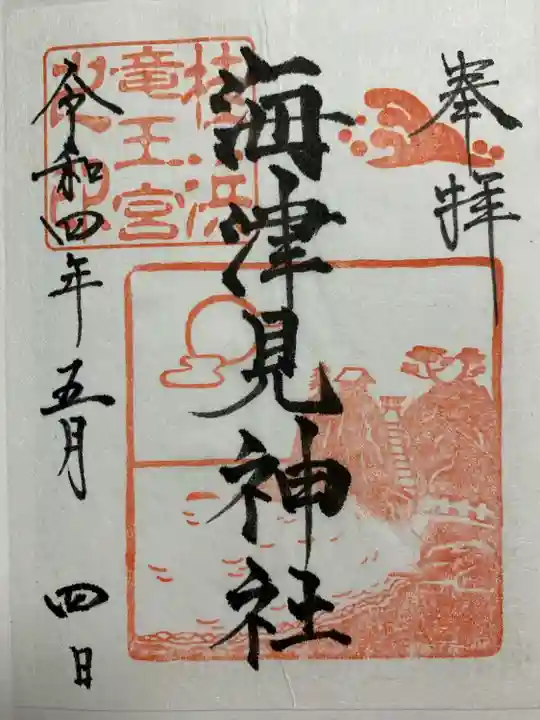 奉拝
海津見神社
桂浜
竜王宮
之印
令和四年五月四日